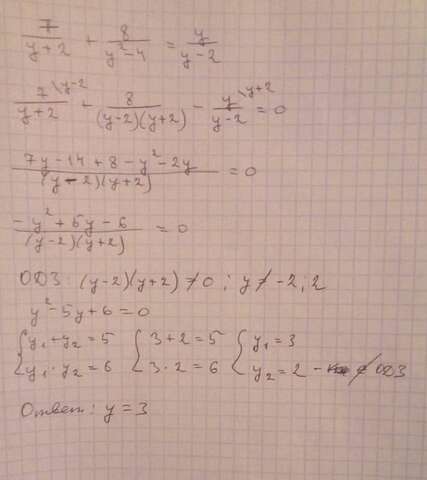 7/(y+2) + 8/(y²-4) = y/(y-2)
7\y-2/(y+2) + 8/((y-2)(y+2)) - y\y+2/(y-2) = 0
(7y-14+8-y²-2y)/((y-2)(y+2)) = 0
(-y²+5y-6)/((y-2)(y+2)) = 0
ОДЗ: (y-2)(y+2)≠0; y≠-2; 2
y²-5y+6=0
{y₁+y₂=5 {3+2=5 {y₁=3
{y₁·y₂=6 {3·2=6 {y₂=2 - ∉ ОДЗ
Ответ: y=3